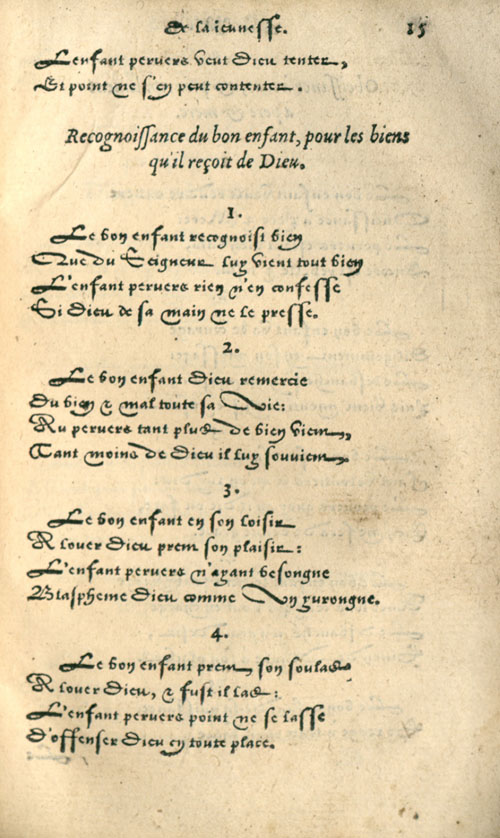 De la ieunesse. 15
L'enfant pervers veut Dieu tenter,
Et point ne s'en peut contenter.
Recognoissance du bon enfant, pour les biens
qu'il reçoit de Dieu.
1.
Le bon enfant recognoist bien
Que du Seigneur luy vient tout bien
L'enfant pervers rien n'en confesse
Si Dieu de sa main ne le presse.
2.
Le bon enfant Dieu remercie
Du bien & mal toute sa Vie:
Au pervers tant plus de bien vient,
Tant moins de Dieu il luy souvient.
3.
Le bon enfant en son loisir
A louer Dieu prent son plaisir:
L'enfant pervers n'ayant besongne
Blaspheme Dieu comme Vn yurongne.
4.
Le bon enfant prent son soulas
A louer Dieu, & fust il las:
L'enfant pervers point ne se lasse
D'offenser Dieu en toute place.